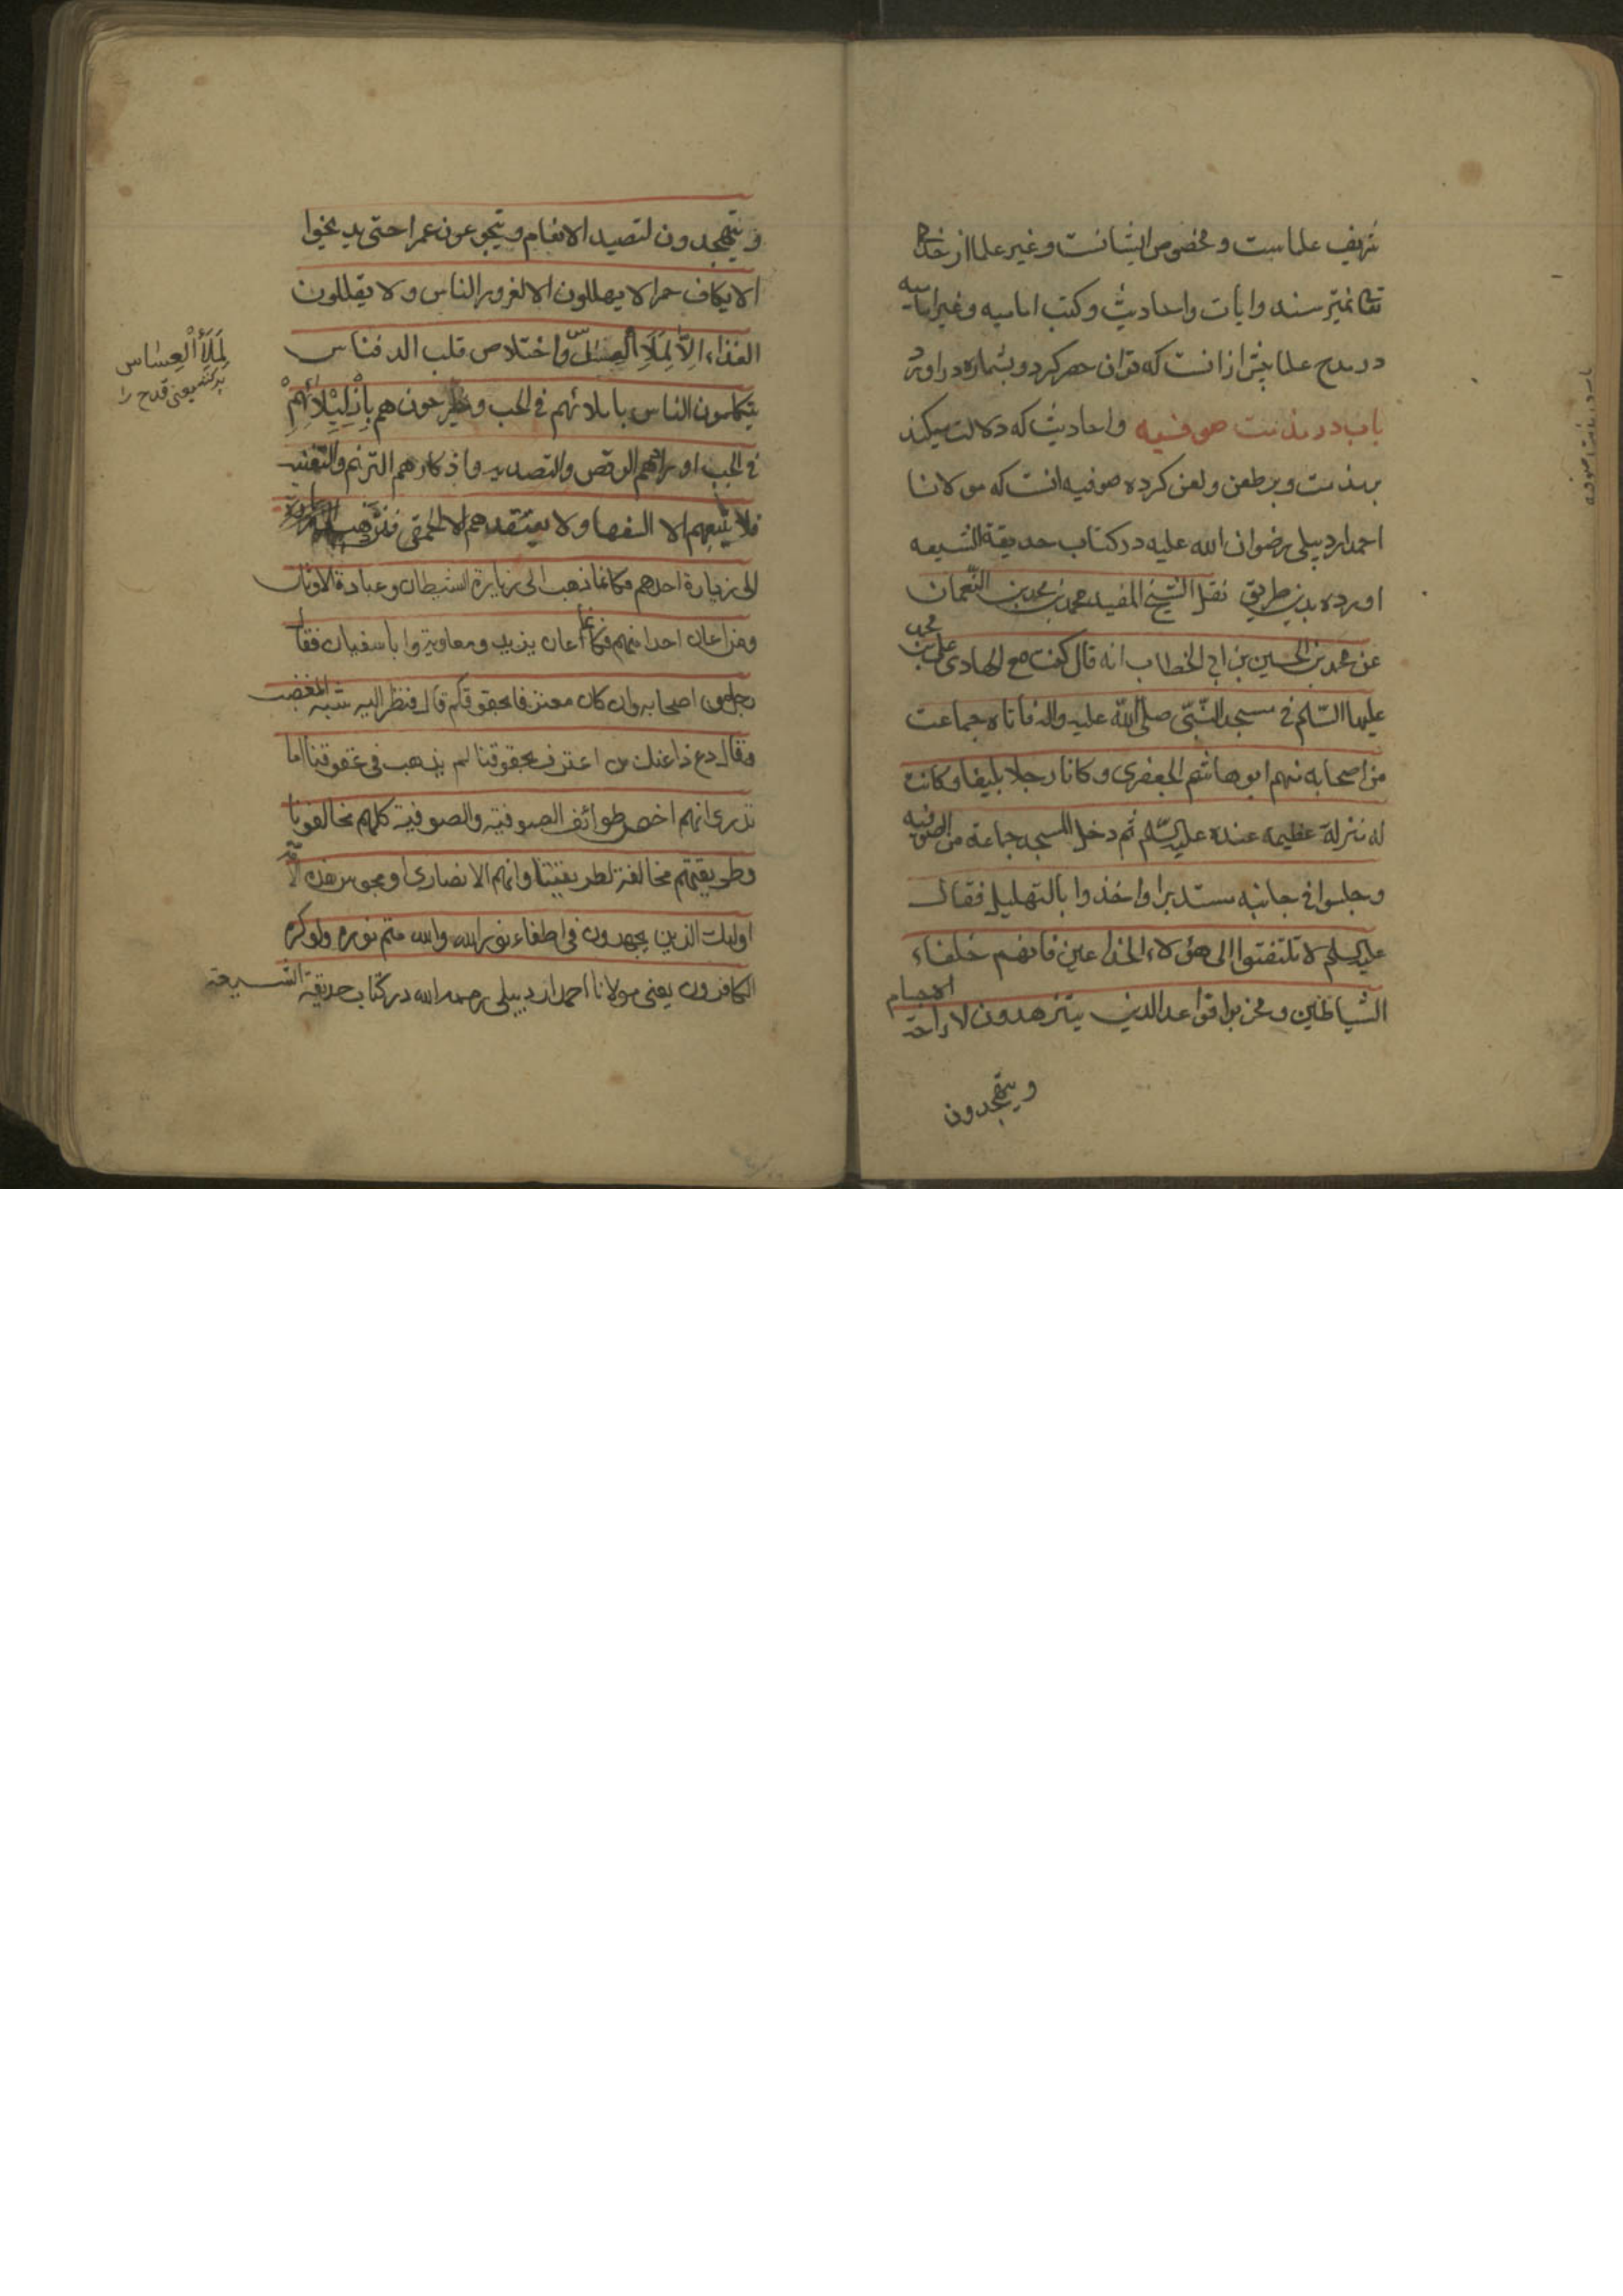 شریف علماست و مخصوص ایشانست و غیر علما از خدای
تعالی نمیترسند و ایات و احادیث و کتب امامیه و غیر امامیه
در مدح علما بیش ازانست که توان حصر کرد و بشماره در اورد
باب در مذمت صوفیه و احادیث که دلالت میکند
بر مذمت و بر طعن و لعن کرده صوفیه انست که مولانا
احمد اردبیلی رضوان الله علیه در کتاب حدیقة الشیعه
اورده بدین طریق نقل الشیخ المفید محمد بن محمد بن النعمان
عن محمد بن الحسین بن ابی الخطاب انه قال کنت مع الهادی علی بن محمد
علیهما السّلم فی مسجد النّبی صلی اللّه علیه واله فاتاه جماعت
من اصحابه منهم ابو هاشم الجعفری و کانا رجلا بلیغا و کانت
له منزلة عظیمه عنده علیه السّلم ثم دخل المسجد جماعة من الصوفیه
و جلسوا فی جانبه مستدیرا و اخذوا بالتهلیل فقال
علیه السلم لا تلتفتوا الی هؤلاء الخداعین فانهم خلفاء
الشیاطین و مخربوا قواعد الدین یتزهدون لاراحة الاجسام
و یتهجدون
و یتهجدون لتصید الانعام و یتجوعون عمرا حتی یدیخوا
الایکاف حمرا لا یهللون الا لغرور الناس و لا یقللون
الغذاء الّا لِمَلَأِ العساس و اختلاص قلب الدفناس
یتکلمون الناس باملائهم فی الحب و یطرحونهم بِاِذْلِیْلَائِهِمْ
فی الجب اورادهم الرقص و التصدیه و اذکارهم الترنم و التغنیه
فلا یتبعهم الا السفها و لا یعتقدهم الا الحمقی فمن ذهب
الی زیارة احدهم فکانما ذهب الی زیارة الشیطان و عبادة الاوثان
و من اعان احدا منهم فکانما اعان یزید و معاویة و ابا سفیان فقال
رجل من اصحابه و ان کان معترفا بحقوقکم قال فنظر الیه شبه المغضب
و قال دع ذا عنک من اعترف بحقوقنا لم یذهب فی عقوقنا اما
تدری انهم اخص طوائف الصوفیة و الصوفیة کلهم مخالفونا
و طریقتهم مخالفة لطریقتنا و انهم الا نصاری او مجوس هذه الامّة
اولیک الذین یجهدون فی اطفاء نور الله و الله متم نوره و لو کره
الکافرون یعنی مولانا احمد اردبیلی رحمه الله در کتاب حدیقة الشیعة
لِمَلَأِ الْعِسَاس
پر کنند یعنی قدح را